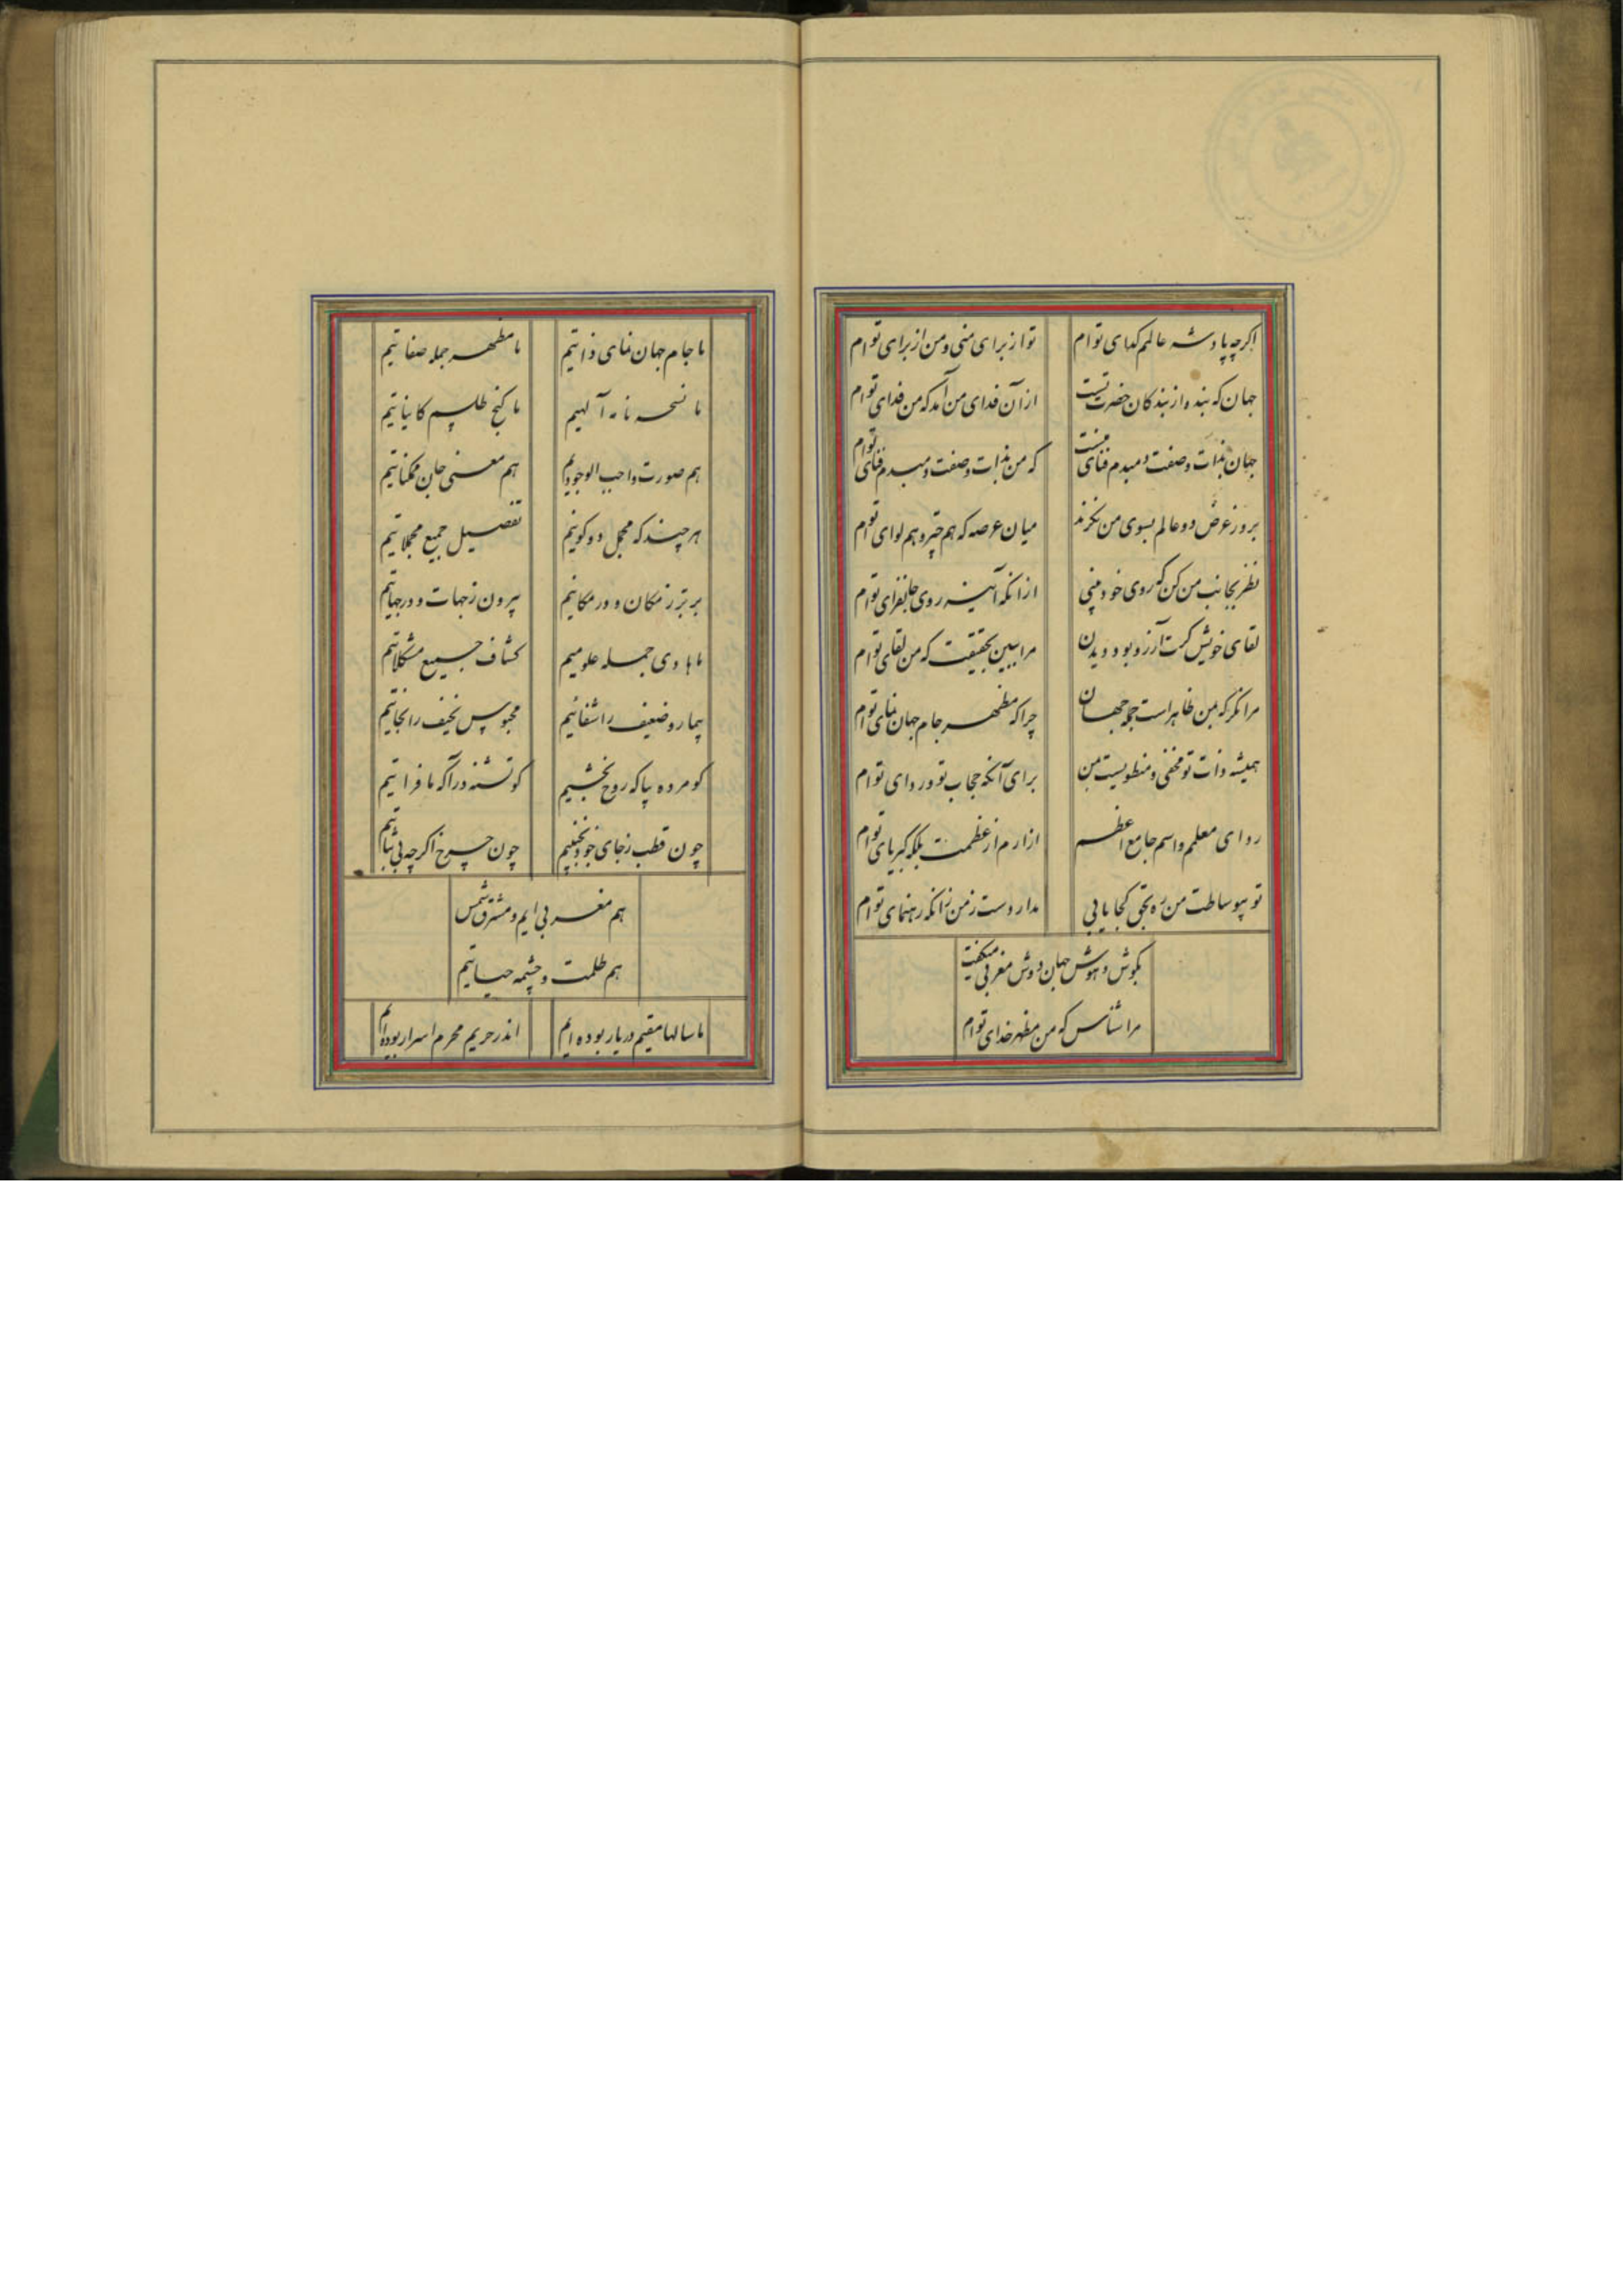 اکرچه پادشه عالمم کدای توام
تو از برای منی و من از برای توام
جهان که بنده از بندکان حضرت تست
از آن فدای من آمد که من فدای توام
جهان بذات و صفت دمبدم فنای منست
که من بذات و صفت دمبدم فنای توام
بروز عرض دو عالم بسوی من نکرند
میان عرصه که هم چتر و هم لوای توام
نظر بجانب من کن که روی خود بینی
از آنکه آئینه روی جانفزای توام
لقای خویش کرت آرزو بود دیدن
مرا ببین بحقیقت که من لقای توام
مرا نکر که بمن ظاهر است جمله جهان
چرا که مظهر جام جهان نمای توام
همیشه ذات تو مخفی و منطویست بمن
برای آنکه حجاب تو و ردای توام
ردای معلمم و اسم جامع اعظم
ازارم از عظمت بلکه کبریای توام
تو بیوساطت من ره بحق کجا یابی
مدار دست ز من زانکه رهنمای توام
بکوش و هوش جهان دوش مغربی میکفت
مرا شناس که من مظهر خدای توام
ما جام جهان نمای ذاتیم
ما مظهر جمله صفاتیم
ما نسخه نامه آلهیم
ما کنج طلسم کایناتیم
هم صورت واجب الوجودیم
هم معنی جان ممکناتیم
هر چند که مجمل دو کونیم
تفصیل جمیع مجملاتیم
برتر ز مکان و در مکانیم
بیرون ز جهات و در جهاتیم
ما هادی جمله علومیم
کشاف جمیع مشکلاتیم
بیمار و ضعیف را شفائیم
محبوس نحیف را نجاتیم
کو مرده بیا که روح بخشیم
کو تشنه درآ که ما فراتیم
چون قطب ز جای خود نجنبیم
چون چرخ اکرچه بی ثباتیم
هم مغربی ایم و مشرق شمس
هم ظلمت و چشمه حیاتیم
ما سالها مقیم در یار بوده ایم
اندر حریم محرم اسرار بوده ایم